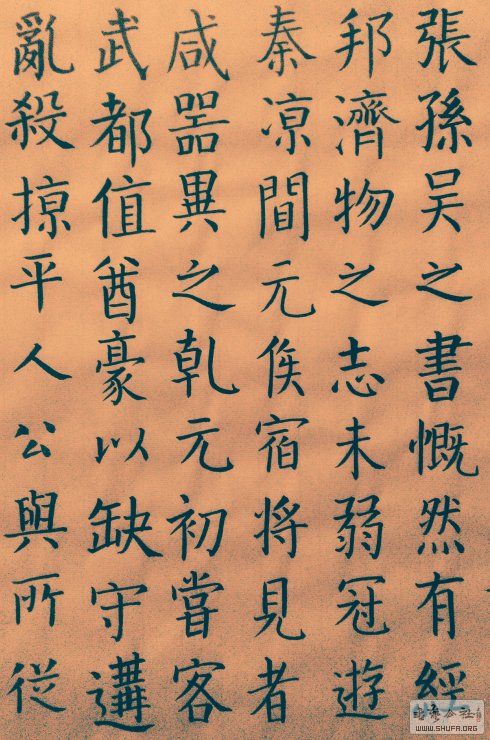 張孫吴之書慨然有經
邦濟物之志未弱冠遊
秦凉間元侯宿將見者
咸噐異之乾元初嘗客
武都值酋豪以缺守遘
亂殺掠平人公與所從
WWW.SHUFA.ORG